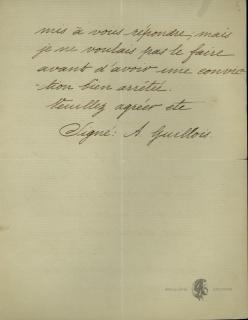 mis à vous répondre, mais
je ne voulais pas le faire
avant d'avoir une convic-
tion bien arrêtée.
Veuillez agréer etc
Signé: A. Guillois.